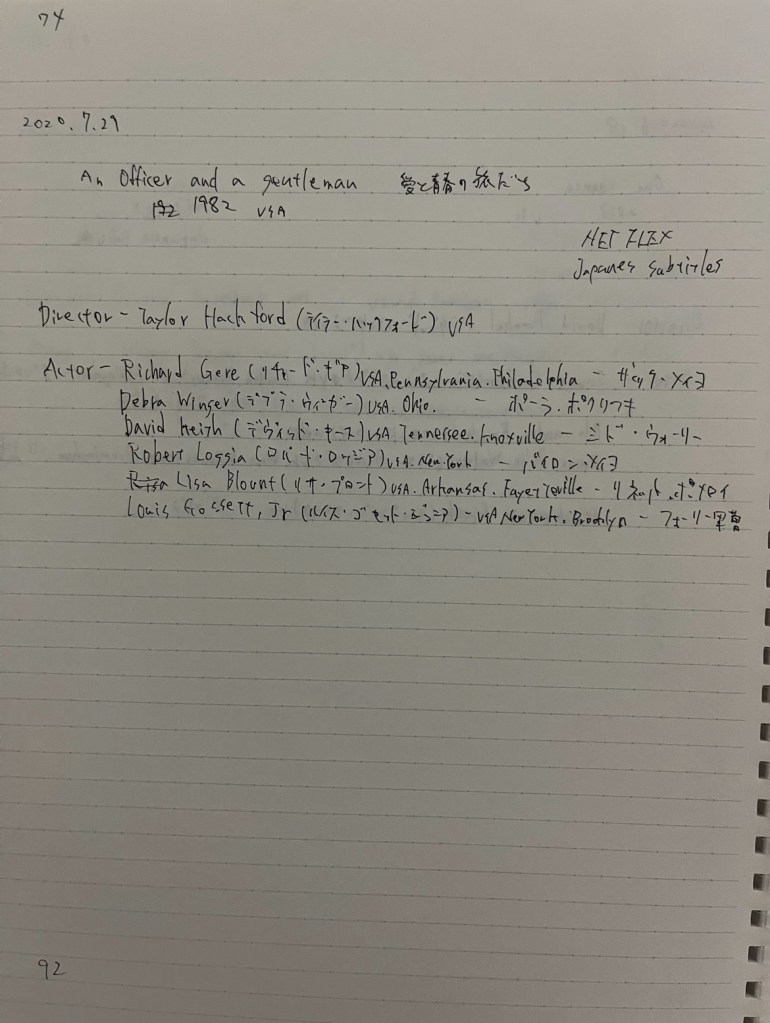 74
2020.7.29
An Officer and a gentleman 愛と青春の旅だち
1982 USA
NETFLEX
Japanes subtitles
Director - Taylor Hackford (テイラー・ハックフォード) USA
Actor - Richard Gere (リチャード・ギア) USA. Pennsylvania. Philadelphia - ザック・メイヨ
Debra Winger (デブラ・ウィンガー) USA. Ohio. - ポーラ・ポクリフキ
David Keith (デヴィッド・キース) USA Tennersee. Knoxville - シド・ウォーリー
Robert Loggia (ロバート・ロッジア) USA. New York - バイロン・メイヨ
Lisa Blount (リサ・ブロント) USA. Arkansas. Fayetteville - リネット・ポメロイ
Louis Gossett, Jr (ルイス・ゴセット・ジュニア) - USA New York. Brooklyn - フォーリー軍曹
92